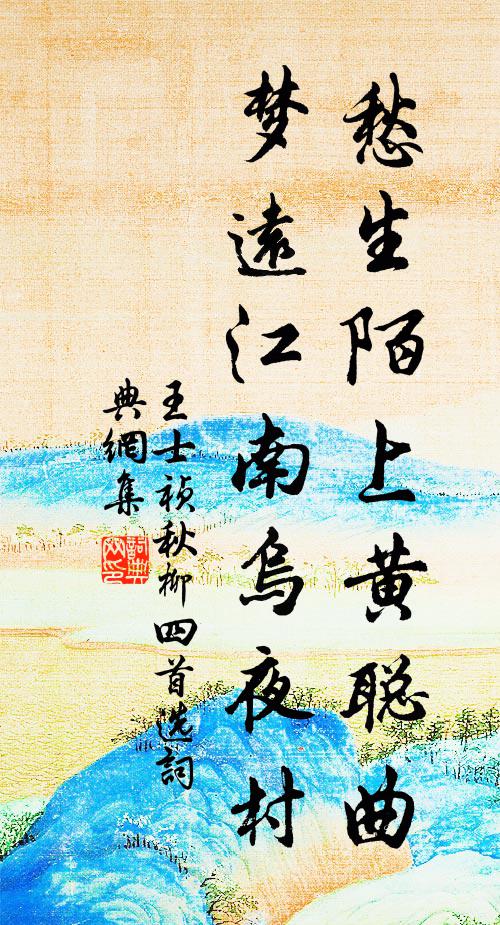 愁生陌上黄聪曲
梦遠江南烏夜村
王士祯秋柳四首选詞
典網集